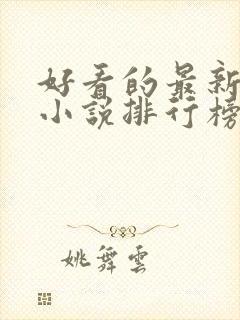 好看的最新
小说排行榜
姚舞雲